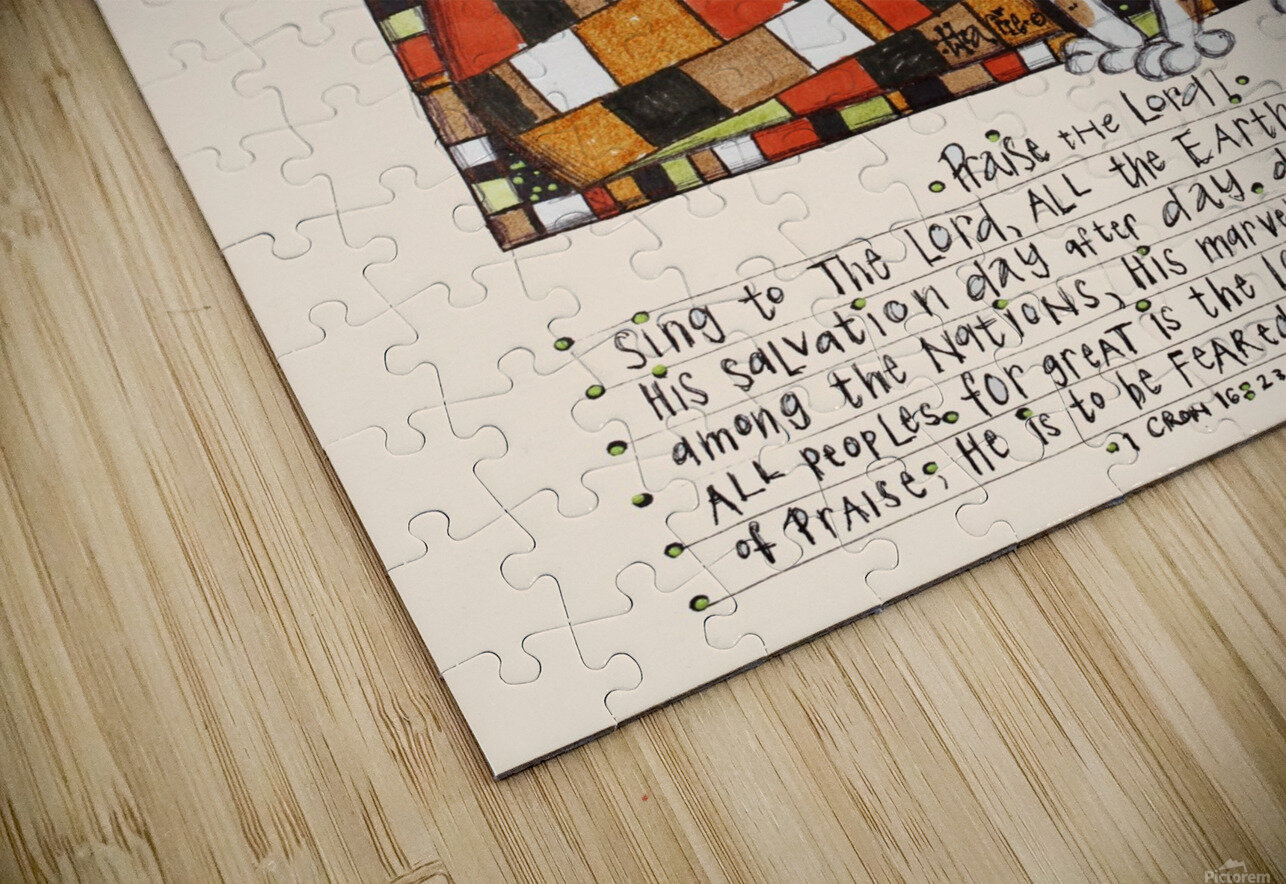 PRaise tHe LoRd!.
Sing to The LoRd, ALL the EARth
His saLvation day after day.
among the NatioNs, His marv
ALL peopLes. for greAT is the lo
of PrAise; He is to be FeARed
1 CRON 16:23
Pictorem